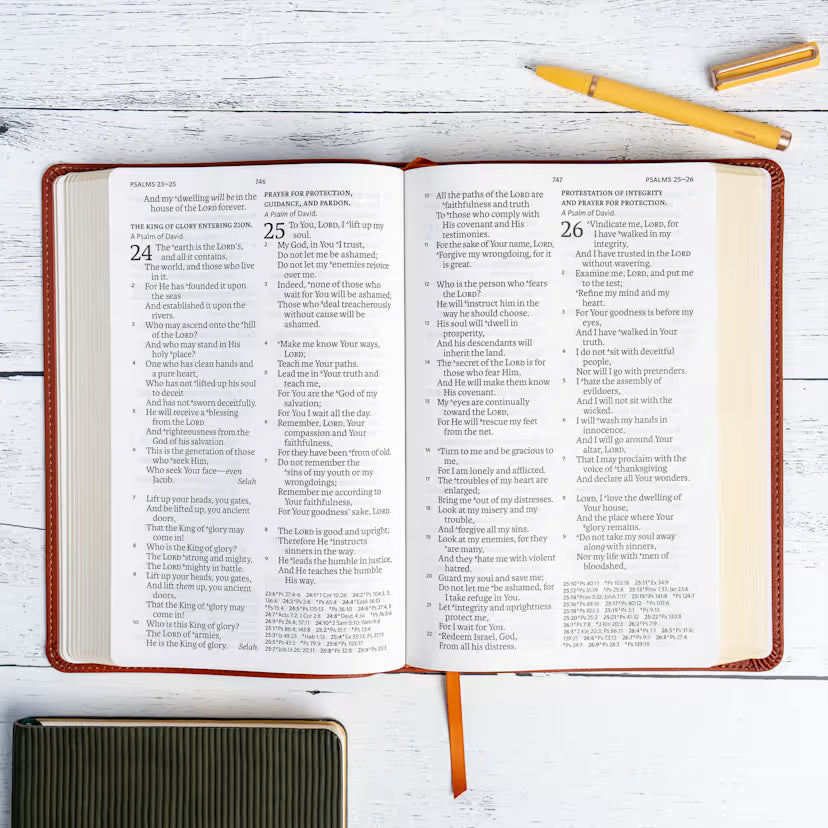 PSALMS 23—25
746
And my ᵃdwelling will be in the
house of the LORD forever.
THE KING OF GLORY ENTERING ZION.
A Psalm of David.
24 The ᵃearth is the LORD's,
and all it contains,
The world, and those who live
in it.
2 For He has ᵃfounded it upon
the seas
And established it upon the
rivers.
3 Who may ascend onto the ᵃhill
of the LORD?
And who may stand in His
holy ᵇplace?
4 One who has clean hands and
a pure heart,
Who has not ᵃlifted up his soul
to deceit
And has not ᵇsworn deceitfully.
5 He will receive a ᵃblessing
from the LORD
And ᵇrighteousness from the
God of his salvation.
6 This is the generation of those
who ᵃseek Him,
Who seek Your face—even
Jacob. Selah
7 Lift up your heads, you gates,
And be lifted up, you ancient
doors,
That the King of ᵃglory may
come in!
8 Who is the King of glory?
The LORD ᵃstrong and mighty,
The LORD ᵇmighty in battle.
9 Lift up your heads, you gates,
And lift them up, you ancient
doors,
That the King of ᵃglory may
come in!
10 Who is this King of glory?
The LORD of ᵃarmies,
He is the King of glory. Selah
PRAYER FOR PROTECTION,
GUIDANCE, AND PARDON.
A Psalm of David.
25 To You, LORD, I ᵃlift up my
soul.
2 My God, in You ᵃI trust,
Do not let me be ashamed;
Do not let my ᵇenemies rejoice
over me.
3 Indeed, ᵃnone of those who
wait for You will be ashamed;
Those who ᵇdeal treacherously
without cause will be
ashamed.
4 ᵃMake me know Your ways,
LORD;
Teach me Your paths.
5 Lead me in ᵃYour truth and
teach me,
For You are the ᵇGod of my
salvation;
For You I wait all the day.
6 Remember, LORD, Your
compassion and Your
faithfulness,
For they have been ᵃfrom of old.
7 Do not remember the
ᵃsins of my youth or my
wrongdoings;
Remember me according to
Your faithfulness,
For Your goodness' sake, LORD.
8 The LORD is good and upright;
Therefore He ᵃinstructs
sinners in the way.
9 He ᵃleads the humble in justice,
And He teaches the humble
His way.
747
PSALMS 25—26
10 All the paths of the LORD are
ᵃfaithfulness and truth
To ᵇthose who comply with
His covenant and His
testimonies.
11 For the sake of Your name, LORD,
ᵃForgive my wrongdoing, for it
is great.
12 Who is the person who ᵃfears
the LORD?
He will ᵇinstruct him in the
way he should choose.
13 His soul will ᵃdwell in
prosperity,
And his descendants will
inherit the land.
14 The ᵃsecret of the LORD is for
those who fear Him,
And He will make them know
His covenant.
15 My ᵃeyes are continually
toward the LORD,
For He will ᵇrescue my feet
from the net.
16 ᵃTurn to me and be gracious to
me,
For I am lonely and afflicted.
17 The ᵃtroubles of my heart are
enlarged;
Bring me ᵇout of my distresses.
18 Look at my misery and my
trouble,
And ᵃforgive all my sins.
19 Look at my enemies, for they
ᵃare many,
And they ᵇhate me with violent
hatred.
20 Guard my soul and save me;
Do not let me ᵃbe ashamed, for
I take refuge in You.
21 Let ᵃintegrity and uprightness
protect me,
For I wait for You.
22 ᵃRedeem Israel, God,
From all his distress.
PROTESTATION OF INTEGRITY
AND PRAYER FOR PROTECTION.
A Psalm of David.
26 ᵃVindicate me, LORD, for
I have ᵇwalked in my
integrity,
And I have trusted in the LORD
without wavering.
2 Examine me, LORD, and put me
to the test;
ᵃRefine my mind and my
heart.
3 For Your goodness is before my
eyes,
And I have ᵃwalked in Your
truth.
4 I do not ᵃsit with deceitful
people,
Nor will I go with pretenders.
5 I ᵃhate the assembly of
evildoers,
And I will not sit with the
wicked.
6 I will ᵃwash my hands in
innocence,
And I will go around Your
altar, LORD,
7 That I may proclaim with the
voice of ᵃthanksgiving
And declare all Your wonders.
8 LORD, I ᵃlove the dwelling of
Your house,
And the place where Your
ᵇglory remains.
9 ᵃDo not take my soul away
along with sinners,
Nor my life with ᵇmen of
bloodshed,